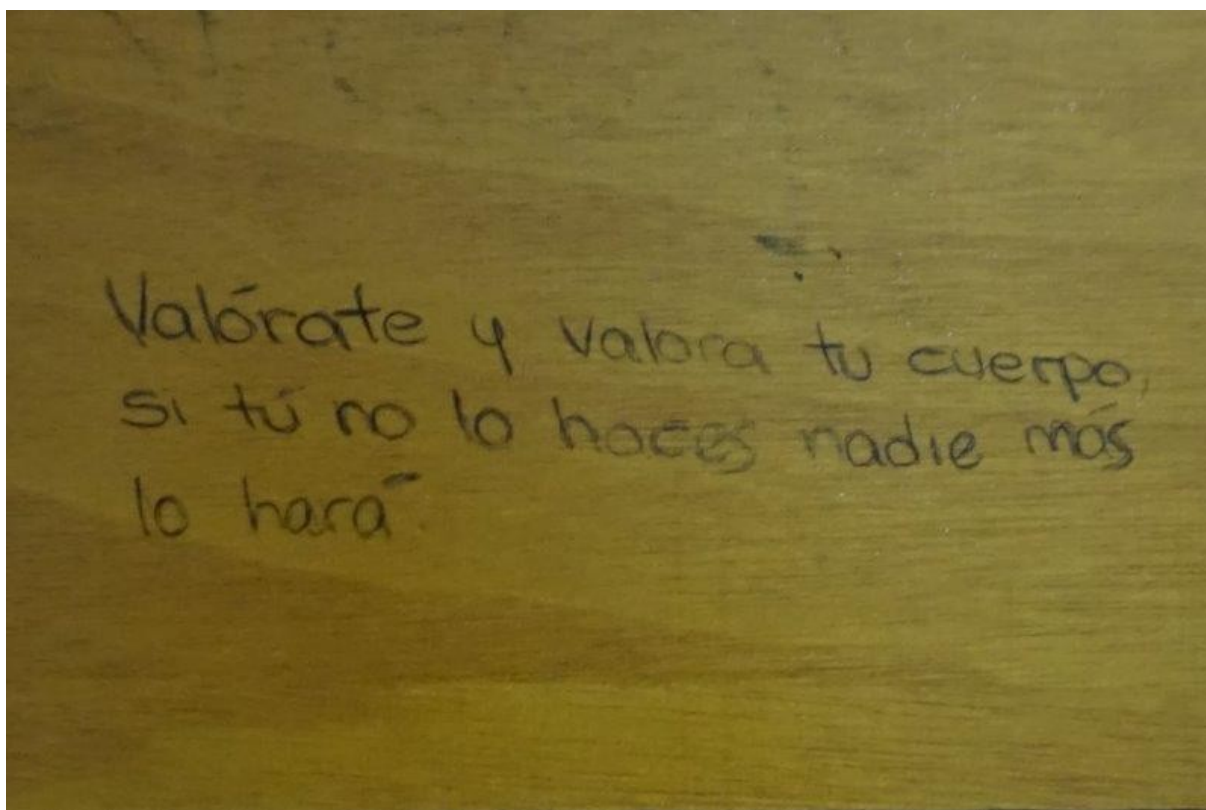 Valórate y valora tu cuerpo,
si tú no lo haces nadie más
lo hará